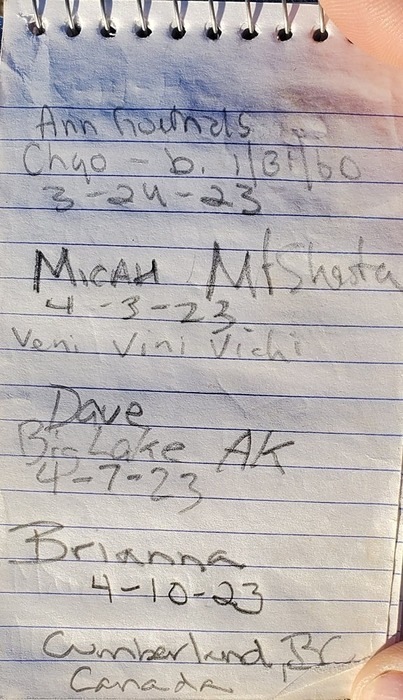 Ann Rounds
Chgo - b. 1/31/60
3-24-23
MICAH Mt Shasta
4-3-23
Veni Vini Vichi
Dave
Big Lake AK
4-7-23
Brianna
4-10-23
Cumberland, BC
Canada